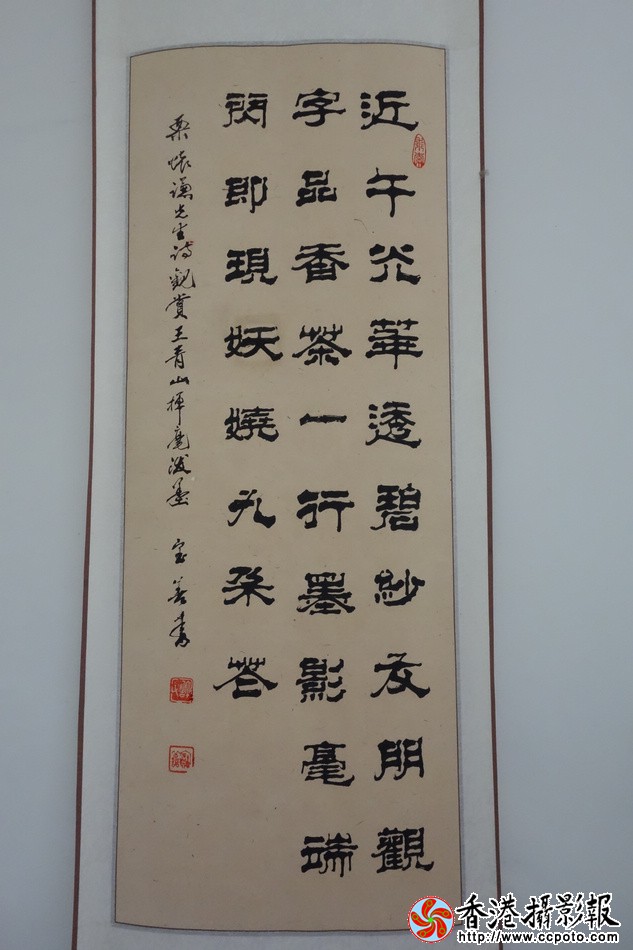 近午光華透碧紗友朋觀
字品香茶一行墨影毫端
閃即現妖嬈九朵花
栗懷謙先生詩觀賞王青山揮毫潑墨 宝善書
香港攝影報
http://www.ccpoto.com